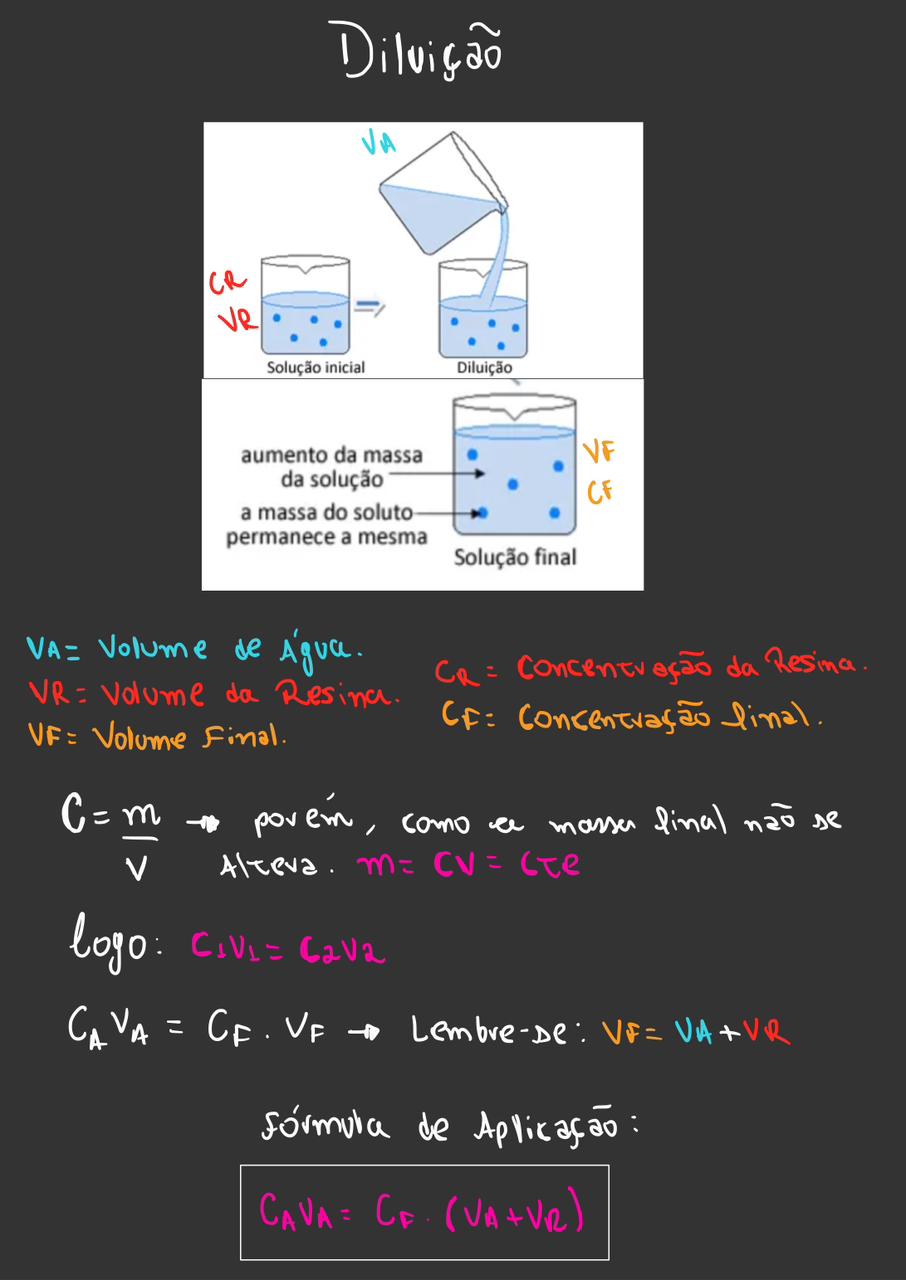 Diluição
VA
CR
VR
Solução inicial
Diluição
aumento da massa
da solução
a massa do soluto
permanece a mesma
VF
CF
Solução final
VA= Volume de Água.
VR= Volume da Resina.
VF= Volume Final.
CR= Concentração da Resina.
CF= Concentração final.
C = m/V → porém, como a massa final não se
Altera. m= CV = CTe
logo: C1V1= C2V2
CAVA = CF . VF → Lembre-se: VF= VA+VR
Fórmula de Aplicação:
CAVA= CF. (VA+VR)